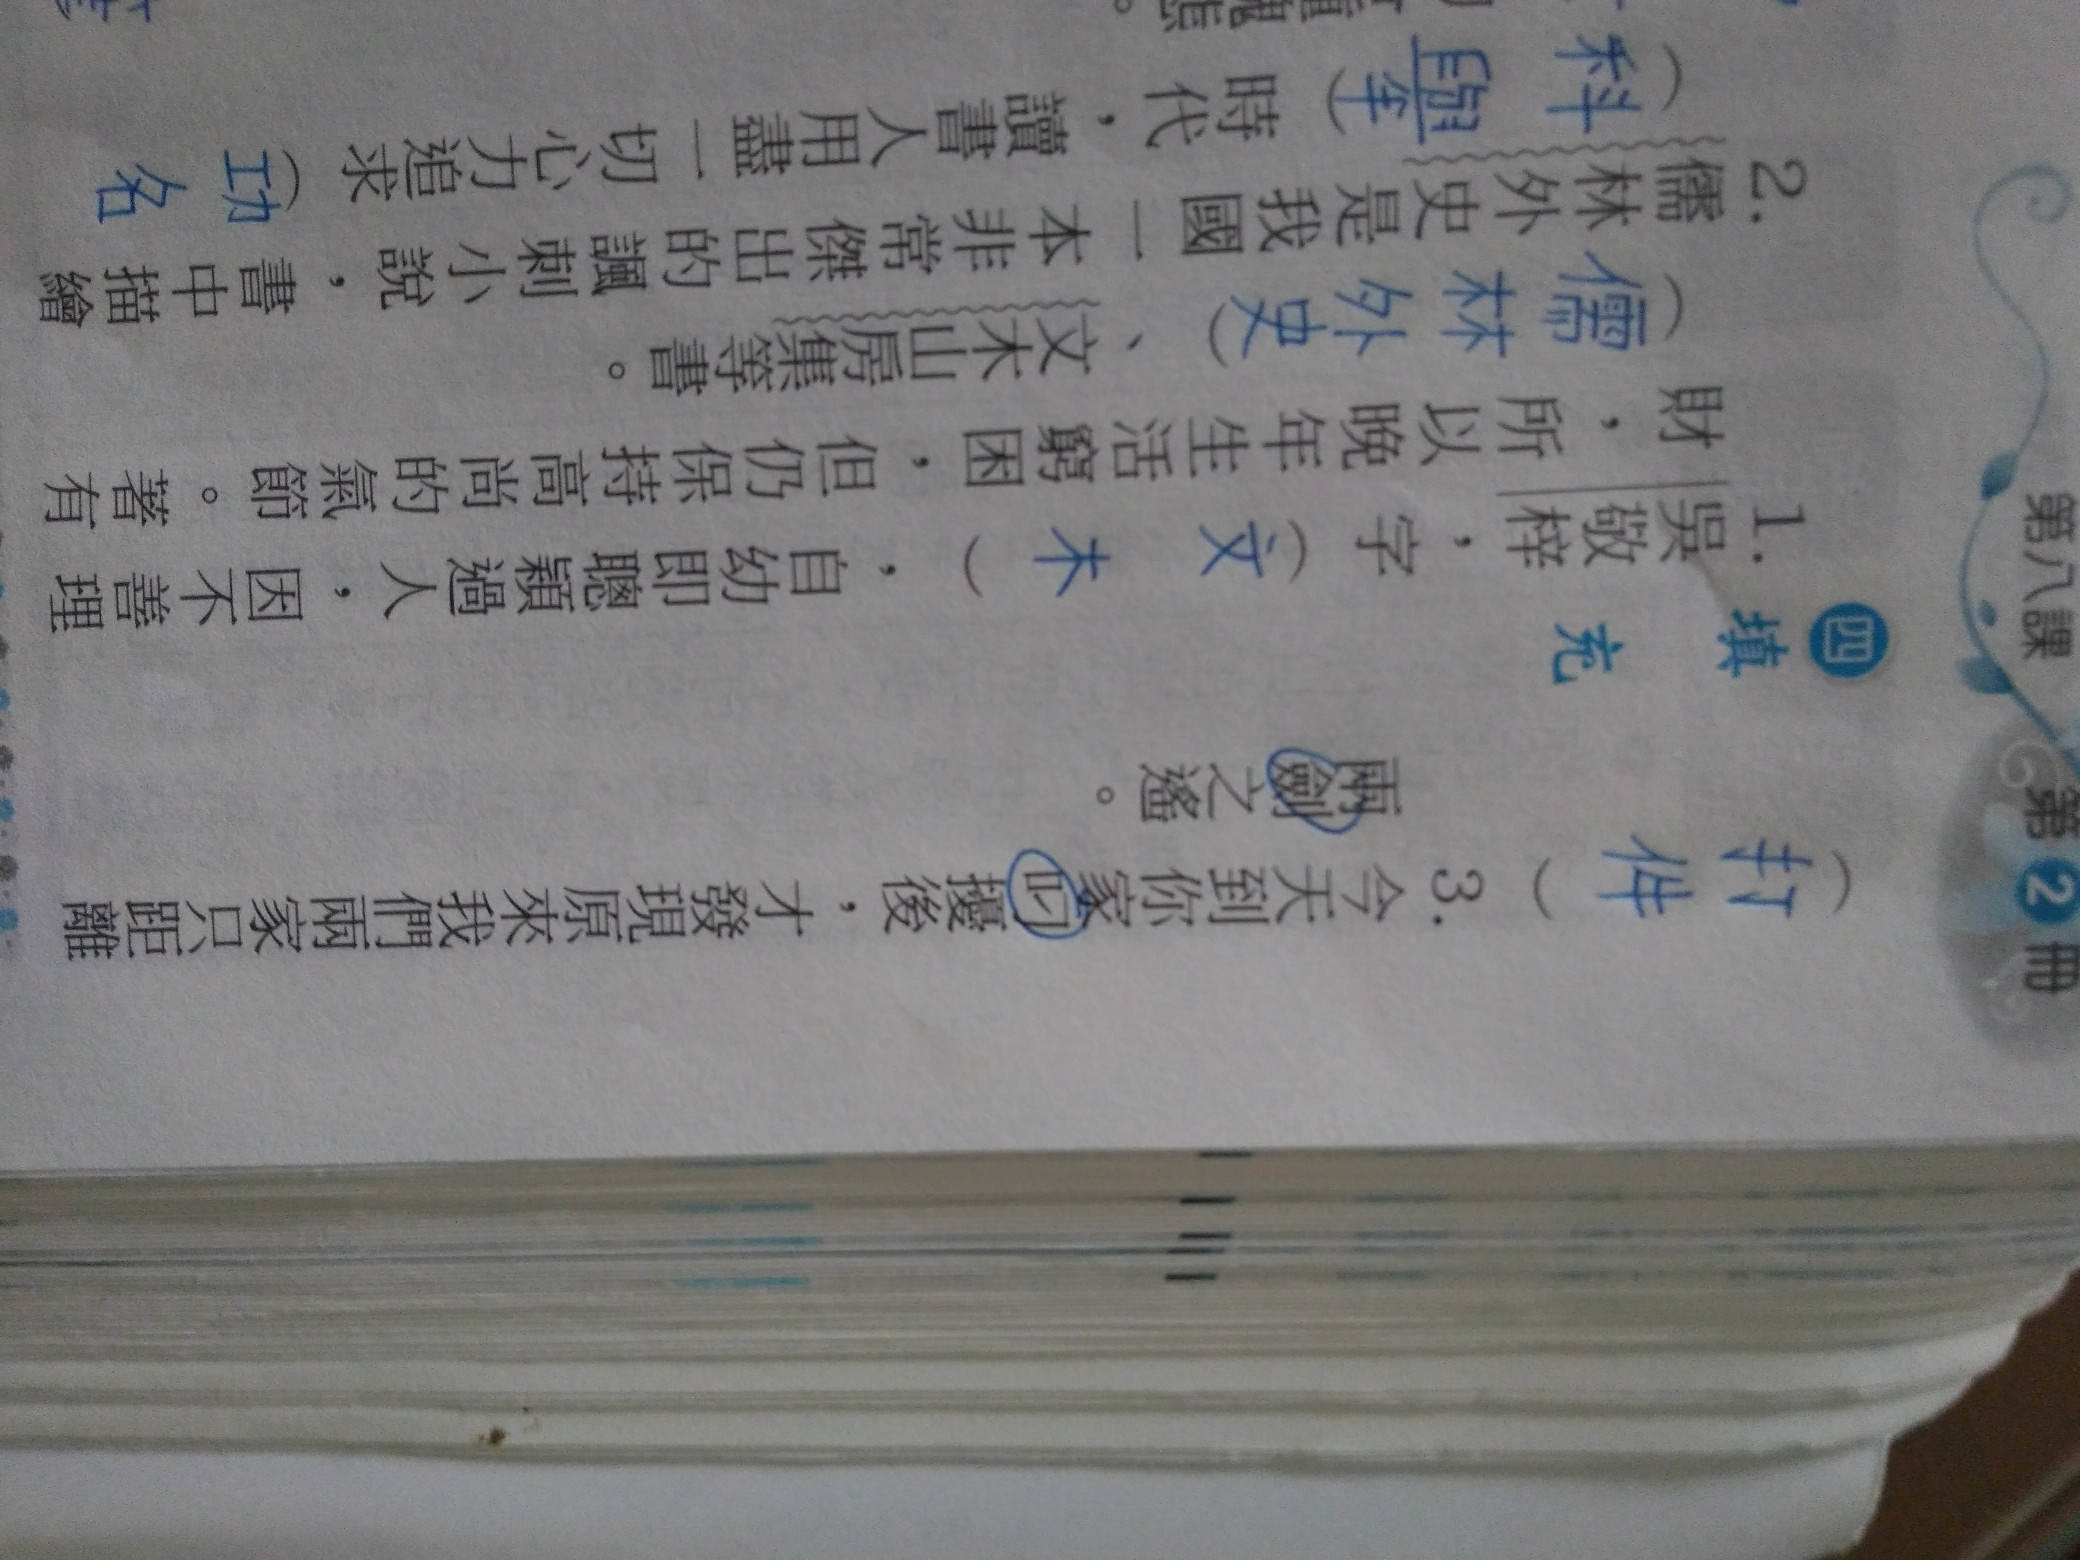 第八課 第2冊
（打 件）3.今天到你家叼擾後，才發現原來我們兩家只距離
兩劍之遙。
四 填充
1.吳敬梓，字（文 木），自幼即聰穎過人，因不善理
財，所以晚年生活窮困，但仍保持高尚的氣節。著有
（儒林外史）、文木山房集等書。
2.儒林外史是我國一本非常傑出的諷刺小說，書中描繪
（科舉）時代，讀書人用盡一切心力追求（功名